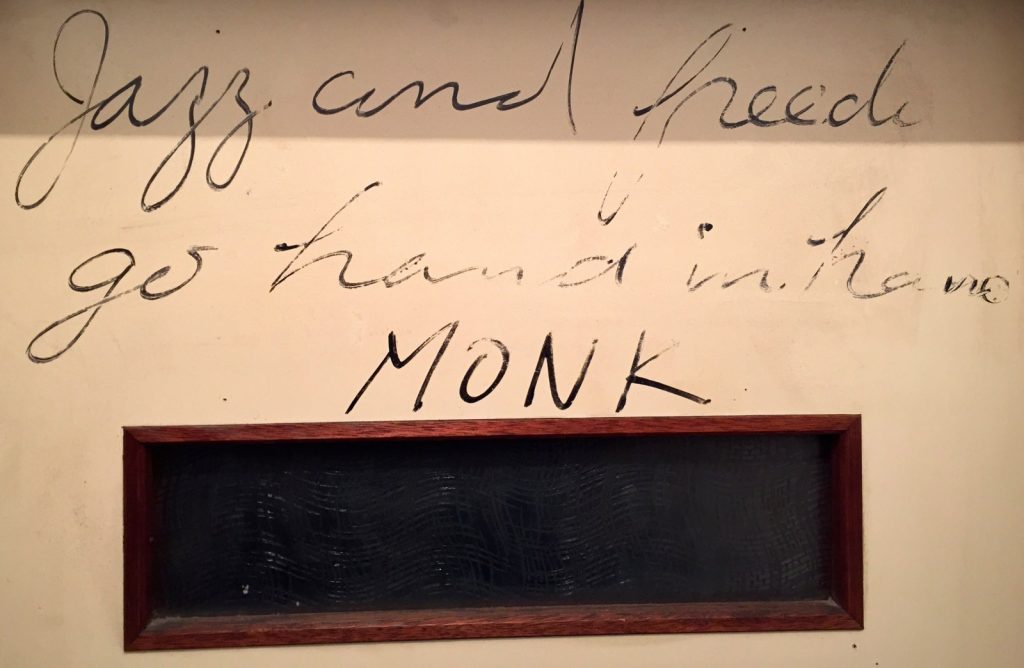 Jazz and freedo
go hand in hand
MONK